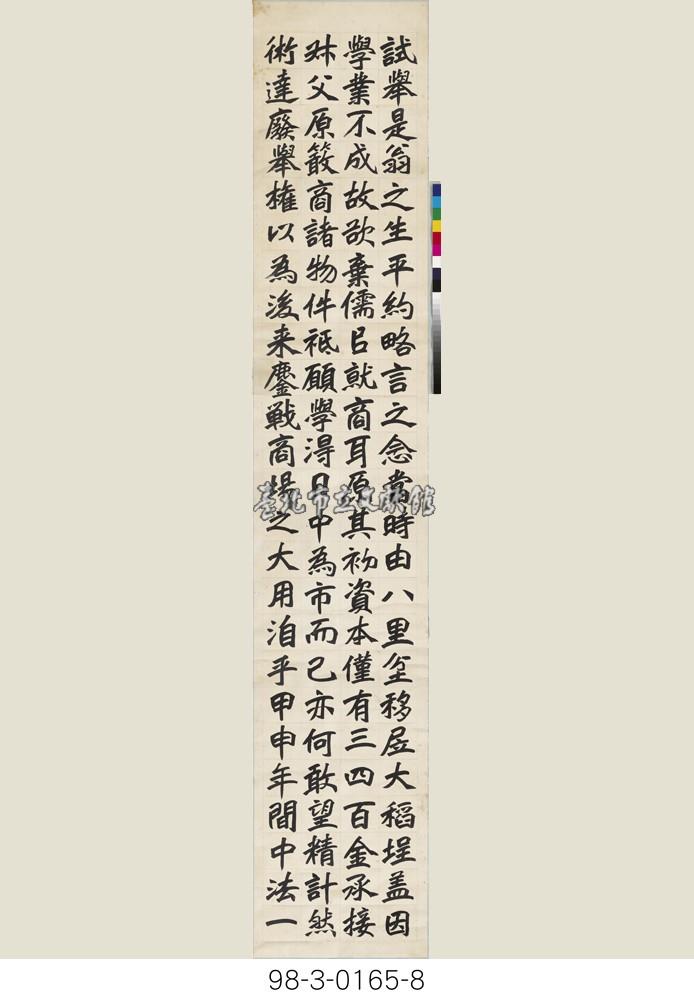 試舉是翁之生平約略言之念當時由八里坌移居大稻埕盖因
學業不成故欲棄儒㠯就商耳原其初資本僅有三四百金承接
叔父原籔商諸物件祗願學得日中為市而已亦何敢望精計然
術達廢舉權以為後来鏖戰商場之大用洎乎甲申年間中法一
臺北市立文獻館
98-3-0165-8